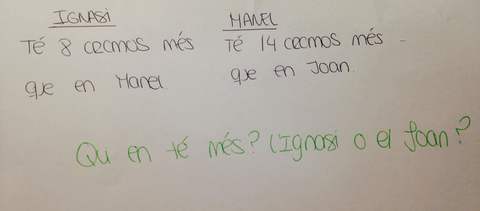 IGNASI
Té 8 cecmos més
que en Manel
MANEL
Té 14 cecmos més
que en Joan
Qui en té més? L'Ignasi o el Joan?